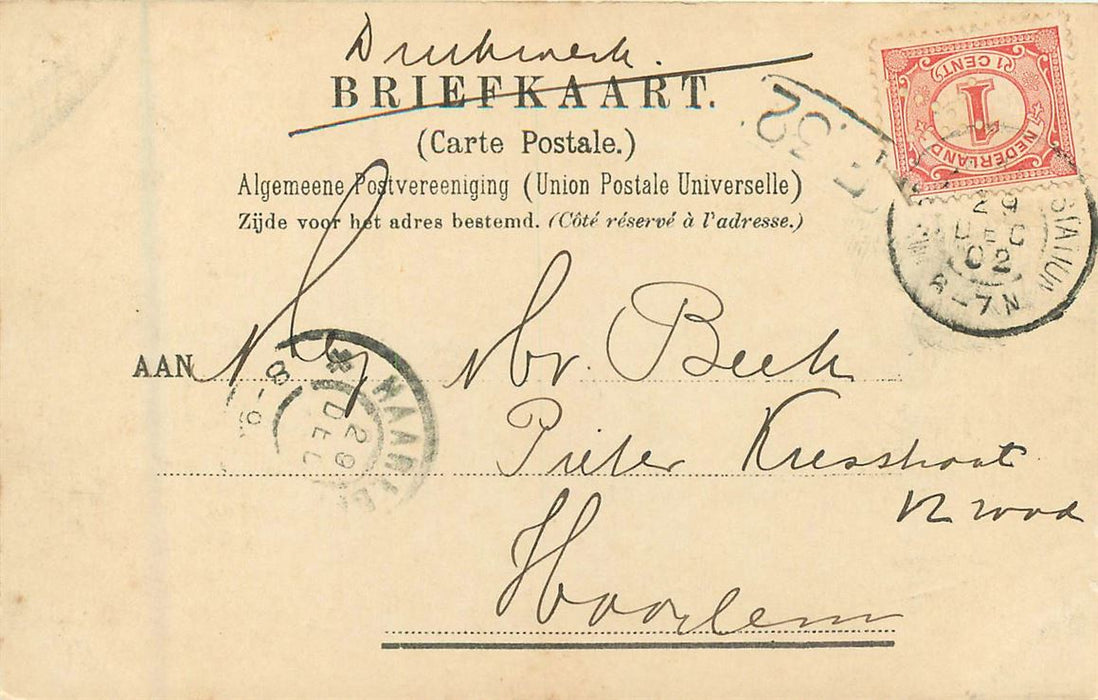 Drukwerk.
BRIEFKAART.
(Carte Postale.)
Algemeene Postvereeniging (Union Postale Universelle)
Zijde voor het adres bestemd. (Côté réservé à l'adresse.)
1 CENT
1
NEDERLAND
STATION
29
DEC
02
6-7N
7.32
AAN Mej v/d Beek
Pieter
Haarlem
HAARLEM
29
DEC
8-9